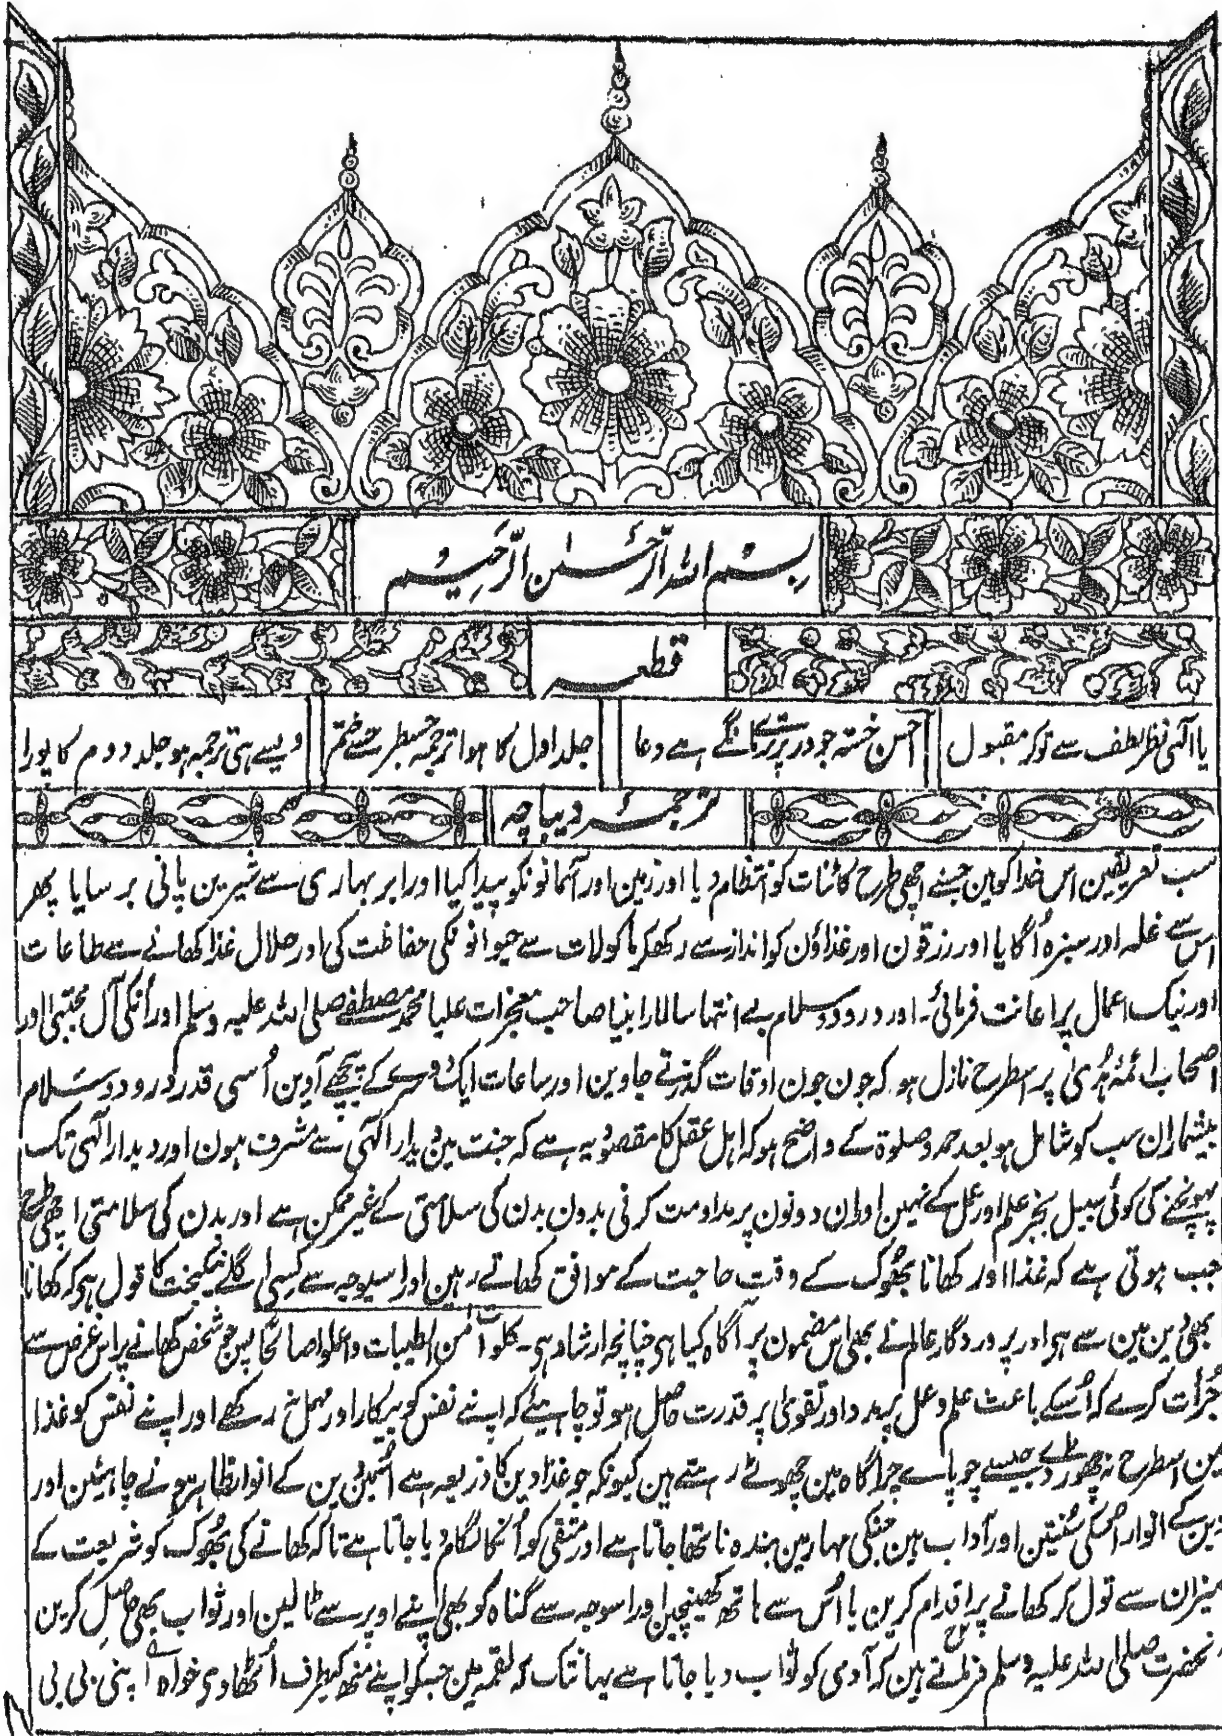 بسم اللہ الرحمٰن الرحیم
قطعہ
یا الٰہی نظر لطف سے تو کر مقبول احسن خستہ جو در پر ترے مانگے ہے دعا جلد اول کا ہوا ترجمہ جسطرحسے ختم ویسے ہی ترجمہ ہو جلد دوم کا پورا
ترجمۂ دیباچہ
سب تعریفین اس خدا کو ہین جسنے اچھی طرح کائنات کو انتظام دیا اور زمین اور آسمانونکو پیدا کیا اور ابر بہاری سے شیرین پانی برسایا پھر
اس سے غلہ اور سبزہ اُگایا اور رزقون اور غذاؤن کو اندازسے رکھکر ماکولات سے حیوانونکی حفاظت کی اور حلال غذا کھانے سے طاعات
اور نیک اعمال پر اعانت فرمائی۔ اور درود وسلام بے انتہا سالار انبیا صاحب معجزات علیا محمد مصطفے صلی اللہ علیہ وسلم اور اُنکی آل مجتبیٰ اور
اصحاب ائمۂ ہُدیٰ پر اسطرح نازل ہو کہ جون جون اوقات گذرتے جاوین اور ساعات ایک دوسرے کے پیچھے آوین اُسی قدر درود وسلام
بیشمار ان سب کو شامل ہو بعد حمد وصلوۃ کے واضح ہو کہ اہل عقل کا مقصود یہ ہے کہ جنت مین دیدار الٰہی سے مشرف ہون اور دیدار الٰہی تک
پہونچنے کی کوئی سبیل بجز علم اور عمل کے نہین اور ان دونون پر مداومت کرنی بدون بدن کی سلامتی کے غیر ممکن ہے اور بدن کی سلامتی اچھی طرح
جب ہوتی ہے کہ غذا اور کھانا بھوک کے وقت حاجت کے موافق کھاتے رہین اور اسیوجہ سے کسی اگلے نیکبخت کا قول ہی کہ کھانا
بھی دین مین سے ہو اور پروردگار عالم نے بھی اس مضمون پر آگاہ کیا ہی چنانچہ ارشاد ہی۔ کلوا من الطیبات واعملوا صالحا پس جو شخص کھانے پر اس غرض سے
جُرأت کرے کہ اُسکے باعث علم وعمل پر مدد اور تقویٰ پر قدرت حاصل ہو تو چاہیئے کہ اپنے نفس کو بیکار اور مہمل نہ رکھے اور اپنے نفس کو غذا
مین اسطرح نہ چھوڑ دے جیسے چوپائے چراگاہ مین چھوٹے رہتے ہین کیونکہ جو غذا دین کا ذریعہ ہے اُسپر دین کے انوار ظاہر ہونے چاہئین اور
دین کے انوار اُسکی سُنتین اور آداب ہین جنکی مہار مین بندہ ناتھا جاتا ہے اور متقی کو اُنکا لگام دیا جاتا ہے تاکہ کھانے کی بھوک کو شریعت کے
میزان سے تول کر کھانے پر اقدام کرین یا اُس سے ہاتھ کھینچین اور اسوجہ سے گناہ کو بھی اپنے اوپر سے ٹالین اور ثواب بھی حاصل کرین
آنحضرت صلی اللہ علیہ وسلم فرماتے ہین کہ آدمی کو ثواب دیا جاتا ہے یہانتک کہ لقمہ مین جسکو اپنے منھ کیطرف اُٹھاوی خواہ اپنی بی بی